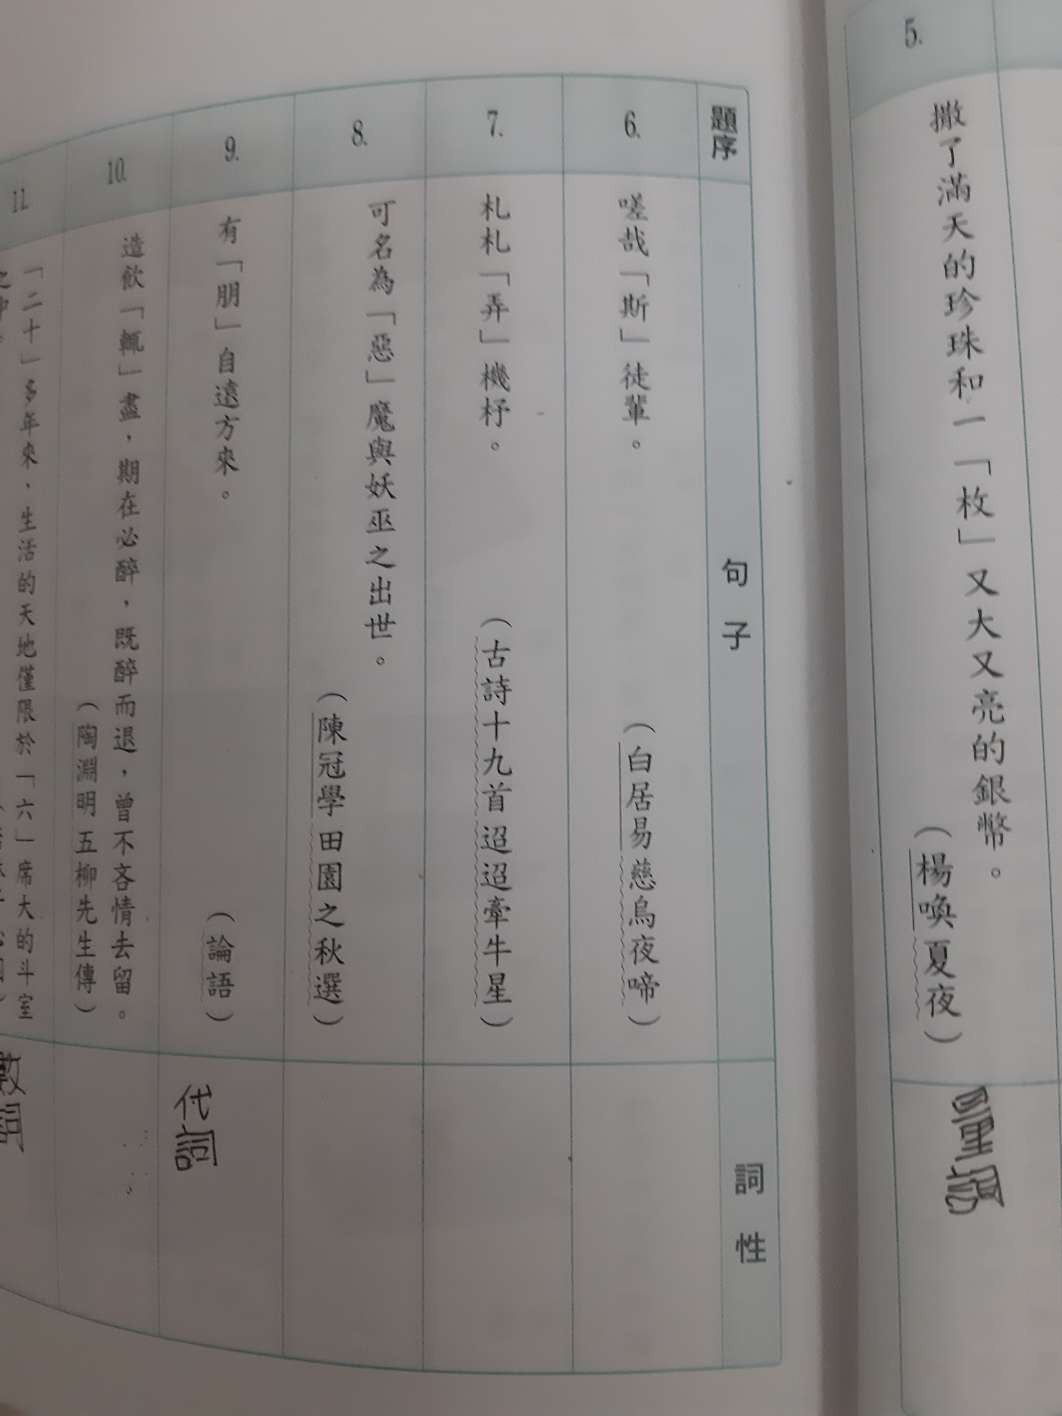 5.
撒了滿天的珍珠和一「枚」又大又亮的銀幣。
（楊喚夏夜）
量詞
題序
句子
詞性
6.
嗟哉「斯」徒輩。
（白居易慈烏夜啼）
7.
札札「弄」機杼。
（古詩十九首迢迢牽牛星）
8.
可名為「惡」魔與妖巫之出世。
（陳冠學田園之秋選）
9.
有「朋」自遠方來。
（論語）
代詞
10.
造飲「輒」盡，期在必醉，既醉而退，曾不吝情去留。
（陶淵明五柳先生傳）
11.
「二十」多年來，生活的天地僅限於「六」席大的斗室
之中。
數詞